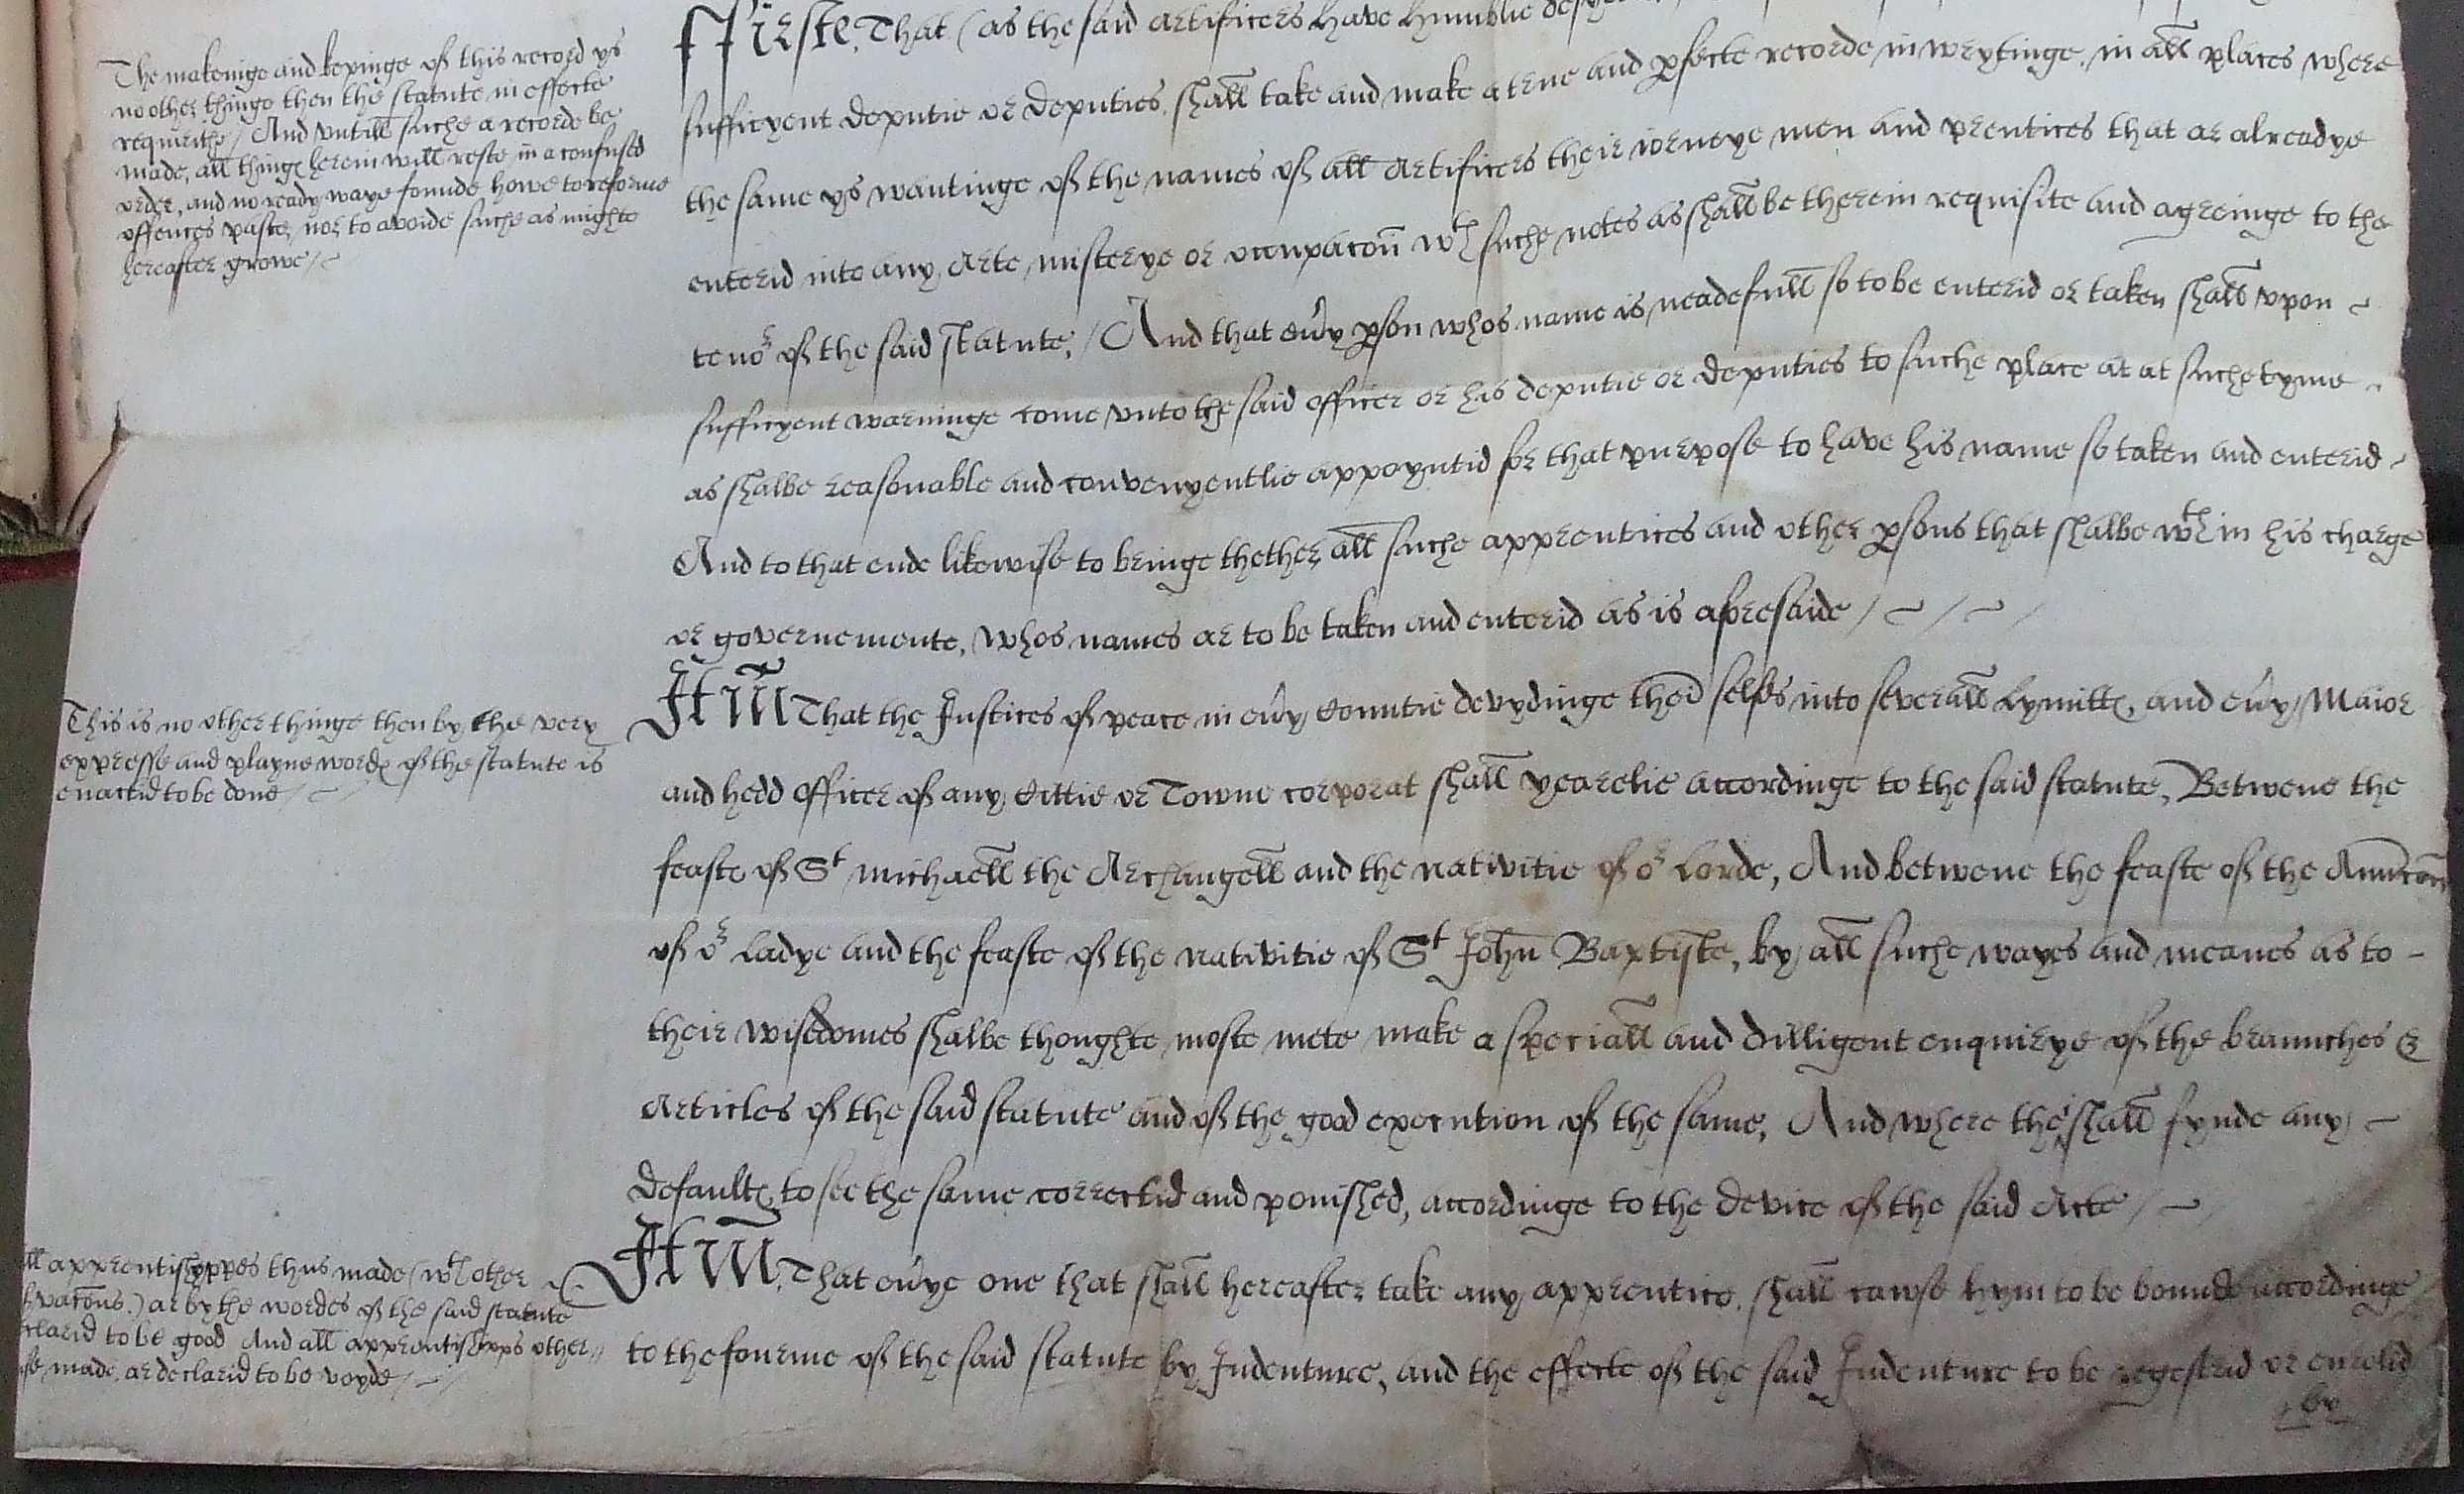 The makeinge and kepinge of this record ys
no other thinge then the statute in effecte
requirithe / And untill suche a recorde be
made, all thinges herein will reste in a confused
order, and no ready waye founde howe to reforme
offences paste, nor to avoide suche as mighte
hereafter growe /
ffirste, That (as the said artificers have humblie
sufficyent deputie or deputies, shall take and make a true and p̱fecte recorde in wrytinge, in all places where
the same ys wantinge of the names of all artificers their iorneye men and prentices that ar alreadye
enterid into any Arte, misterye or occupacoñ wth suche notes as shall be therein requisite and agreinge to the
tenor of the said statute, / And that eũy p̱son whos name is neadefull so to be enterid or taken shall upon
sufficyent warninge come unto the said officer or his deputie or deputies to suche place at at suche tyme
as shalbe reasonable and convenyentlie appoyntid for that purpose to have his name so taken and enterid
And to that ende likewise to bringe thether all suche apprentices and other p̱sons that shalbe wthin his charge
or governemente, whos names ar to be taken and enterid as is aforesaide /
This is no other thinge then by the very
expresse and playne wordes of the statute is
enactid to be done /
Itm̃ That the Justices of peace in eũy Countie devydinge them̃ selfes into severall lymittes, and eũy Maior
and hedd officer of any Cittie or Towne corporat shall yearelie accordinge to the said statute, Betwene the
feaste of St Michaell the Archangell and the nativitie of or Lorde, And betwene the feaste of the Annũcacoñ
of or Ladye and the feaste of the nativitie of St John Baptyste, by all suche wayes and meanes as to
their wisedomes shalbe thoughte moste mete make a speciall and dilligent enquirye of the braunches &
Articles of the said statute and of the good execution of the same, And where thei shall fynde any
defaultes to see the same correctid and ponished, accordinge to the device of the said Acte /
ll apprentishyppes thus made (wth other
vacõns.) ar by the wordes of the said statute
clarid to be good And all apprentishipps other
se made, ar declarid to be voyde /
Itm̃, That eũye one that shall hereafter take any apprentice, shall cawse hym to be bounde accordinge
to the fourme of the said statute by Indenture, and the effecte of the said Indenture to be regestrid or enrolid
by